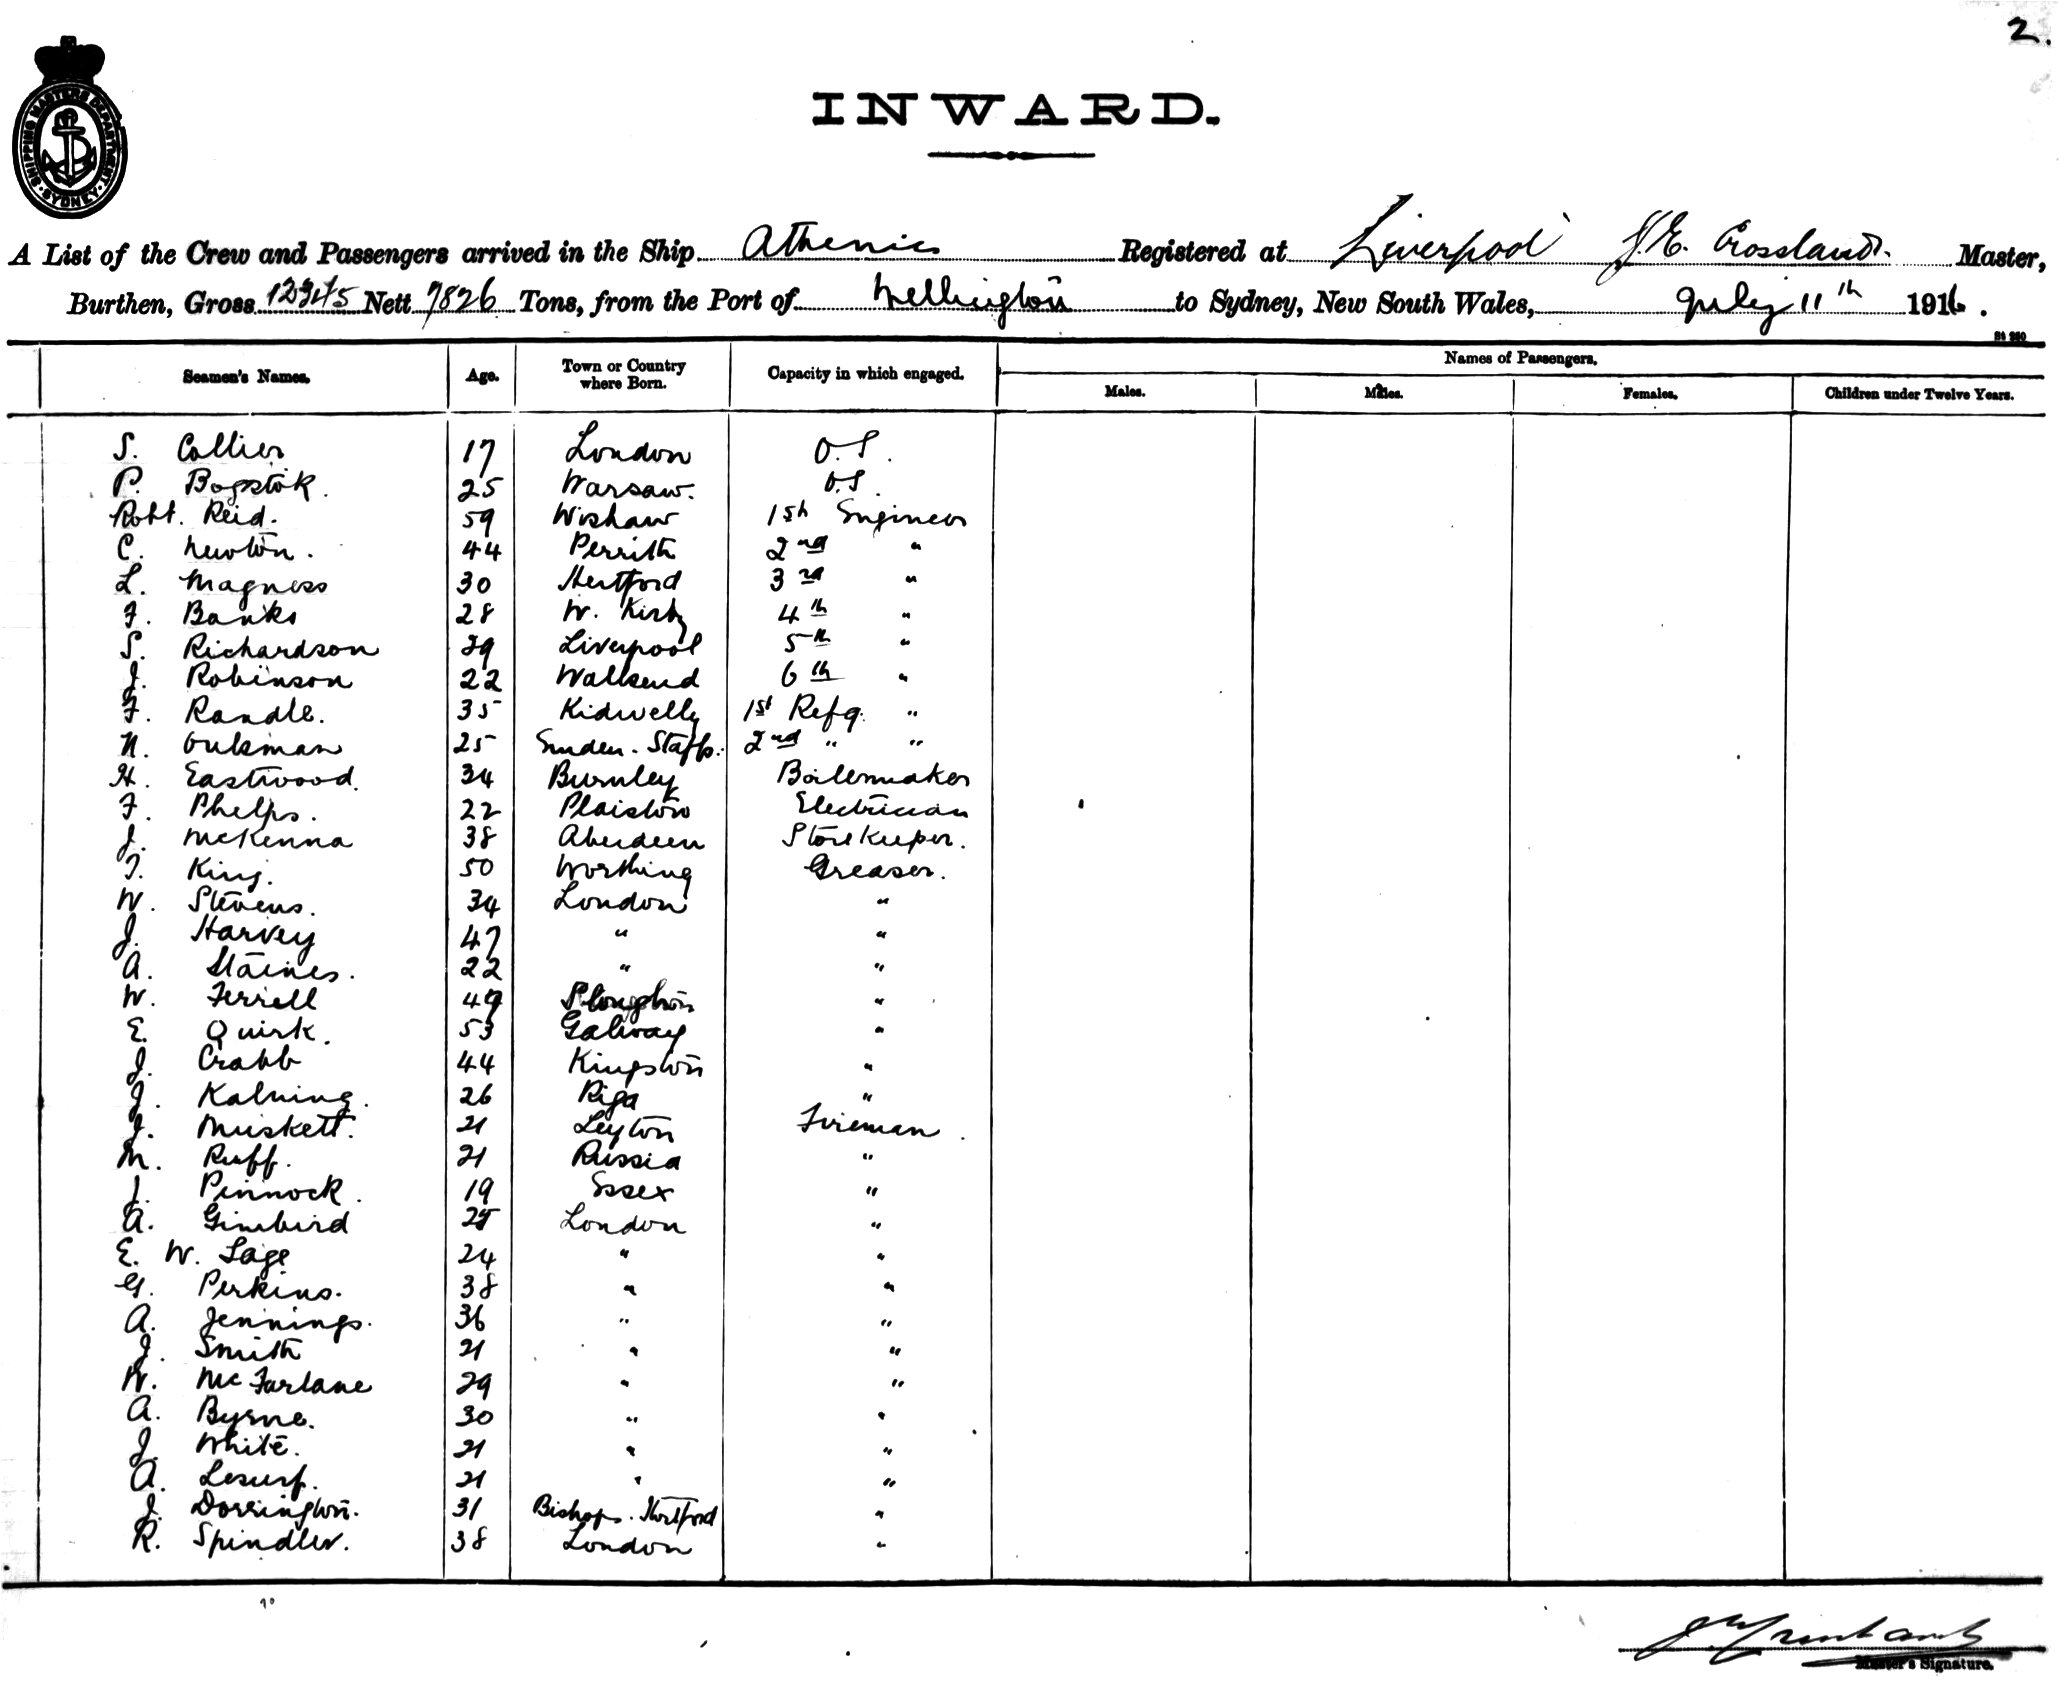 2.
SHIPPING MASTERS DEPARTMENT. SYDNEY.
INWARD.
A List of the Crew and Passengers arrived in the Ship Athenic Registered at Liverpool J. E. Crossland. Master,
Burthen, Gross 12345 Nett 7826 Tons, from the Port of Wellington to Sydney, New South Wales, July 11th 1916.
St 230
Seamen's Names. Age. Town or Country where Born. Capacity in which engaged. Names of Passengers.
Males. Males. Females. Children under Twelve Years.
S. Collier 17 London O.S.
P. Bogstok. 25 Warsaw. O.S.
Robt. Reid. 59 Wishaw 1st Engineer
C. Newton. 44 Perrith 2nd "
L. Magness 30 Hertford 3rd "
F. Banks 28 W. Kirby 4th "
S. Richardson 29 Liverpool 5th "
J. Robinson 22 Wallsend 6th "
F. Randle. 35 Kidwelly 1st Refg. "
N. 25 Staffs. 2nd " "
H. Eastwood. 34 Burnley Boilermaker
F. Phelps. 22 Plaistow Electrician
J. McKenna 38 Aberdeen Storekeeper.
T. King. 50 Worthing Greaser.
W. Stevens. 34 London "
J. Harvey 47 " "
A. Staines. 22 " "
W. Ferrell 49 "
E. Quirk. 53 Galway "
J. Crabb 44 Kingston "
J. Kalning. 26 Riga "
J. Muskett. 21 Leyton Fireman.
M. Ruff. 21 Russia "
J. Pinnock. 19 Essex "
A. Gimbird 25 London "
E. W. Sage 24 " "
G. Perkins. 38 " "
A. Jennings. 36 " "
J. Smith 21 " "
W. McFarlane 29 " "
A. Byrne. 30 " "
J. White. 21 " "
A. Lesurf. 21 " "
J. Dorrington. 31 Bishops. Stortford "
R. Spindler. 38 London "
Master's Signature.